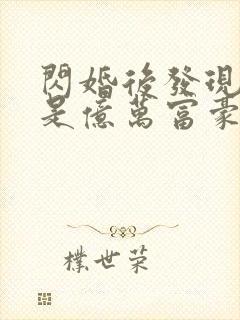 閃婚後發現
是億萬富豪
樸世荣